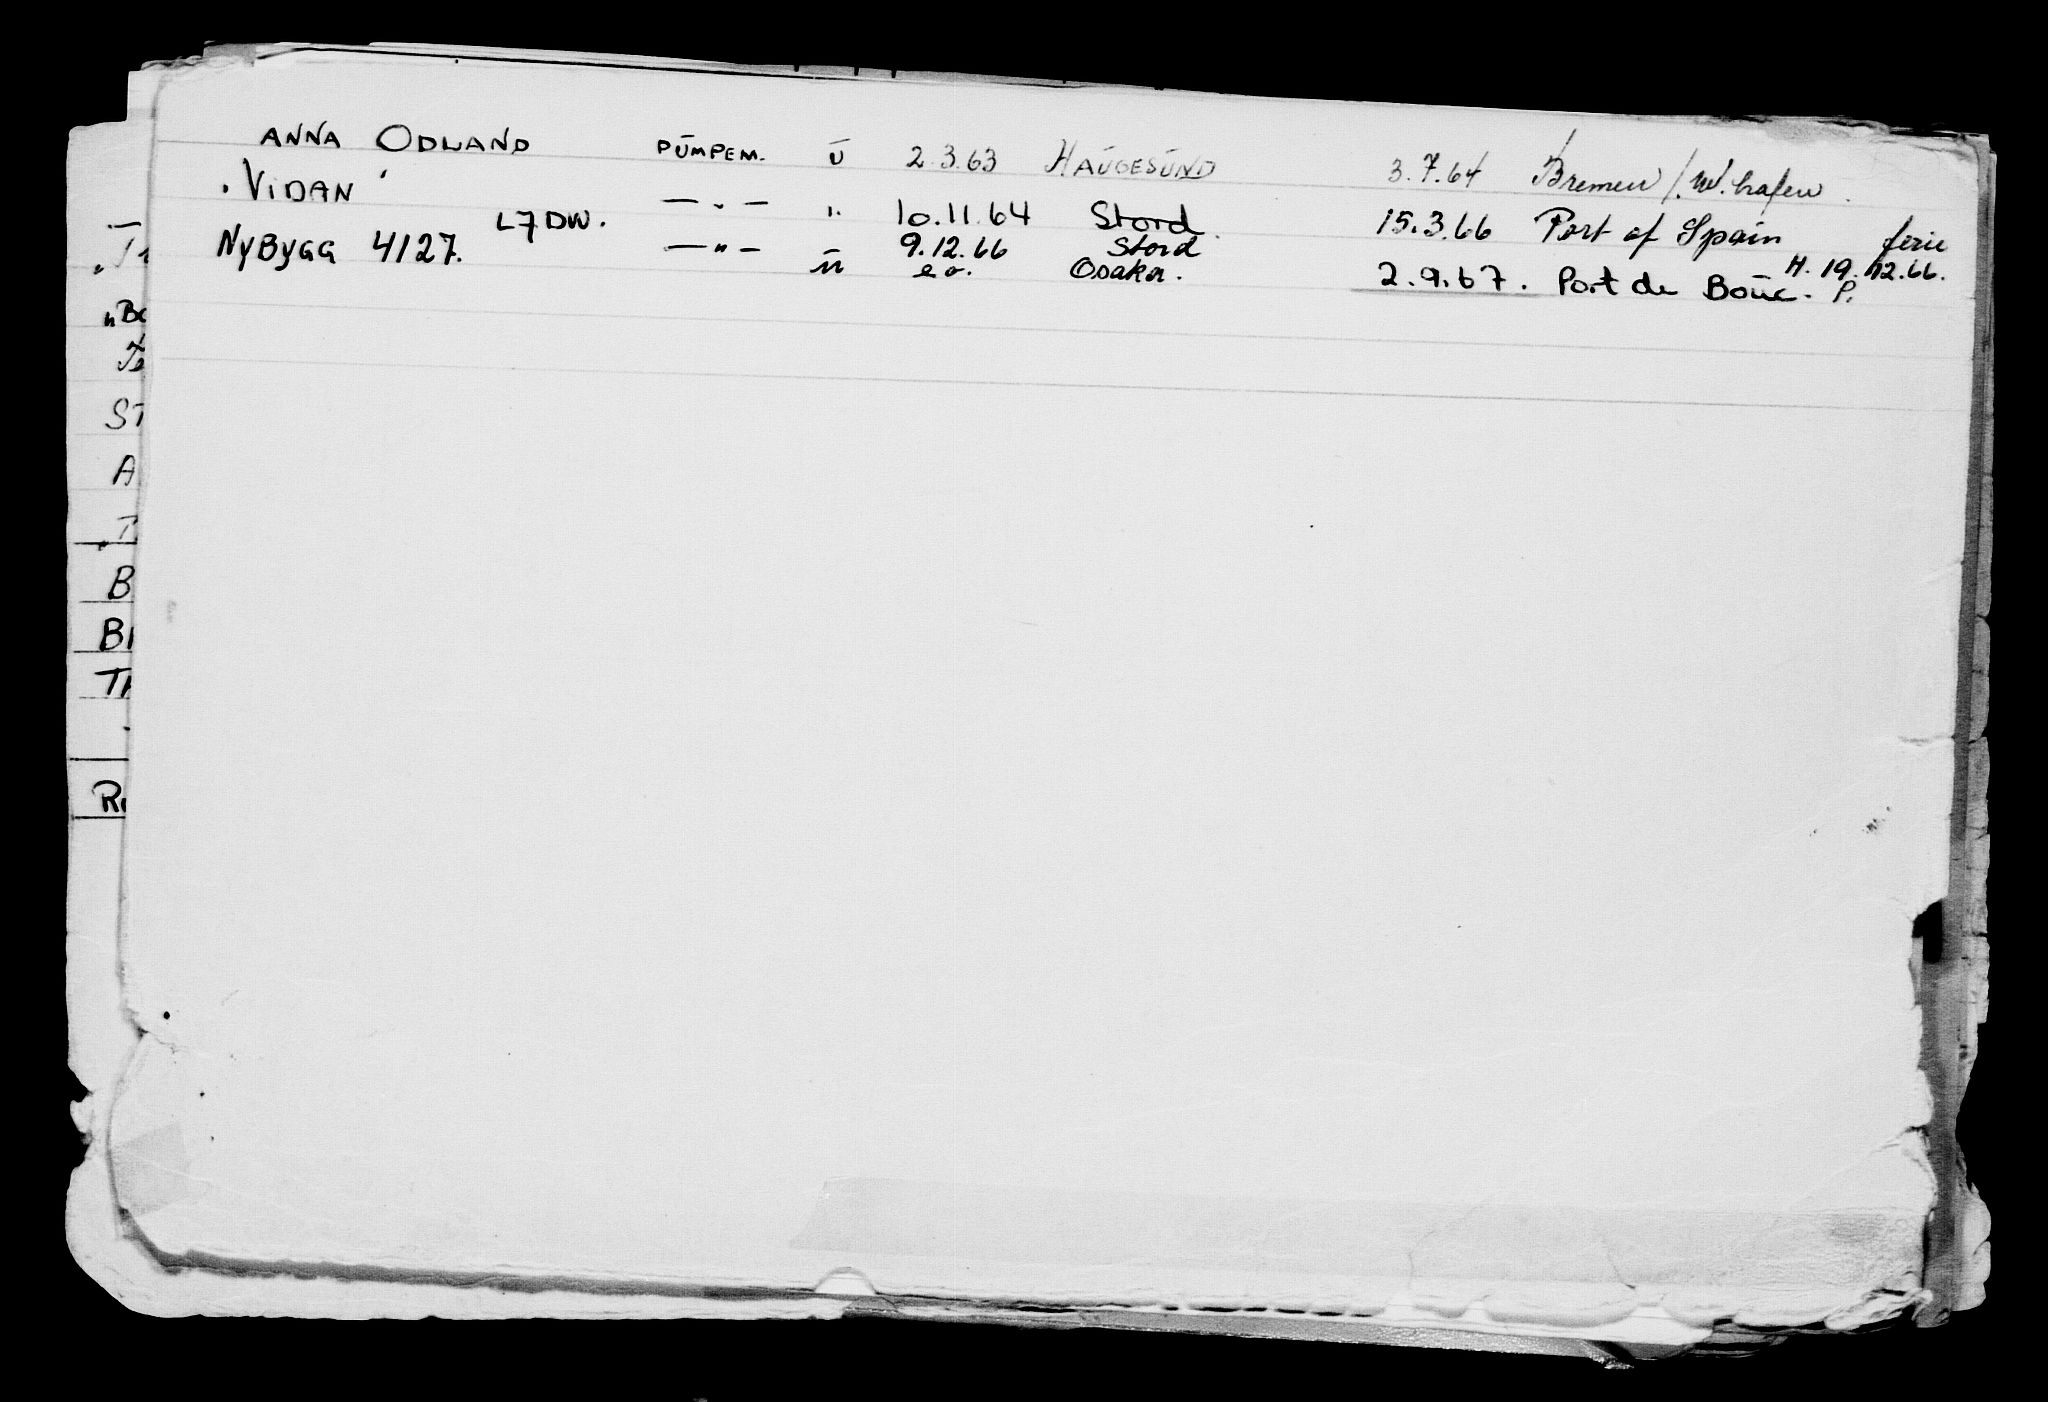 ANNA ODLAND PUMPEM. U 2.3.63 HAUGESUND 3.7.64 Bremen / W.hafen.
"VIDAN" — " — ". 10.11.64 Stord. 15.3.66 Port of Spain ferie
NYBYGG 4127. L7DW. — " — 9.12.66 Stord H. 19.12.66.
m e.o. Osaka. 2.9.67. Port de Bouc. P.
ST
A
B
TH